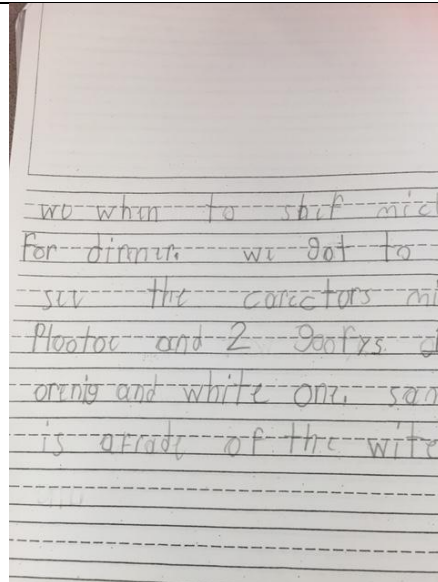 we when to shef mic
for dinner. we got to
see the carectors mi
Plootoe and 2 goofys. a
orenig and white one. san
is afrade of the wite